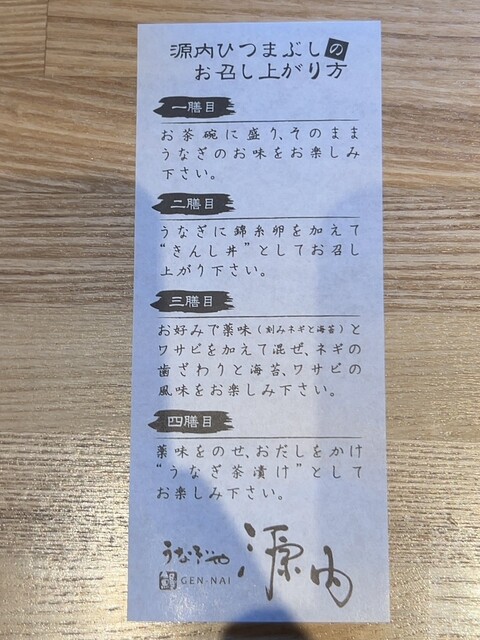 源内ひつまぶしの
お召し上がり方
一膳目
お茶碗に盛り、そのまま
うなぎのお味をお楽しみ
下さい。
二膳目
うなぎに錦糸卵を加えて
“きんし丼”としてお召し
上がり下さい。
三膳目
お好みで薬味（刻みネギと海苔）と
ワサビを加えて混ぜ、ネギの
歯ざわりと海苔、ワサビの
風味をお楽しみ下さい。
四膳目
薬味をのせ、おだしをかけ
“うなぎ茶漬け”として
お楽しみ下さい。
うなぎや
GEN-NAI
源内